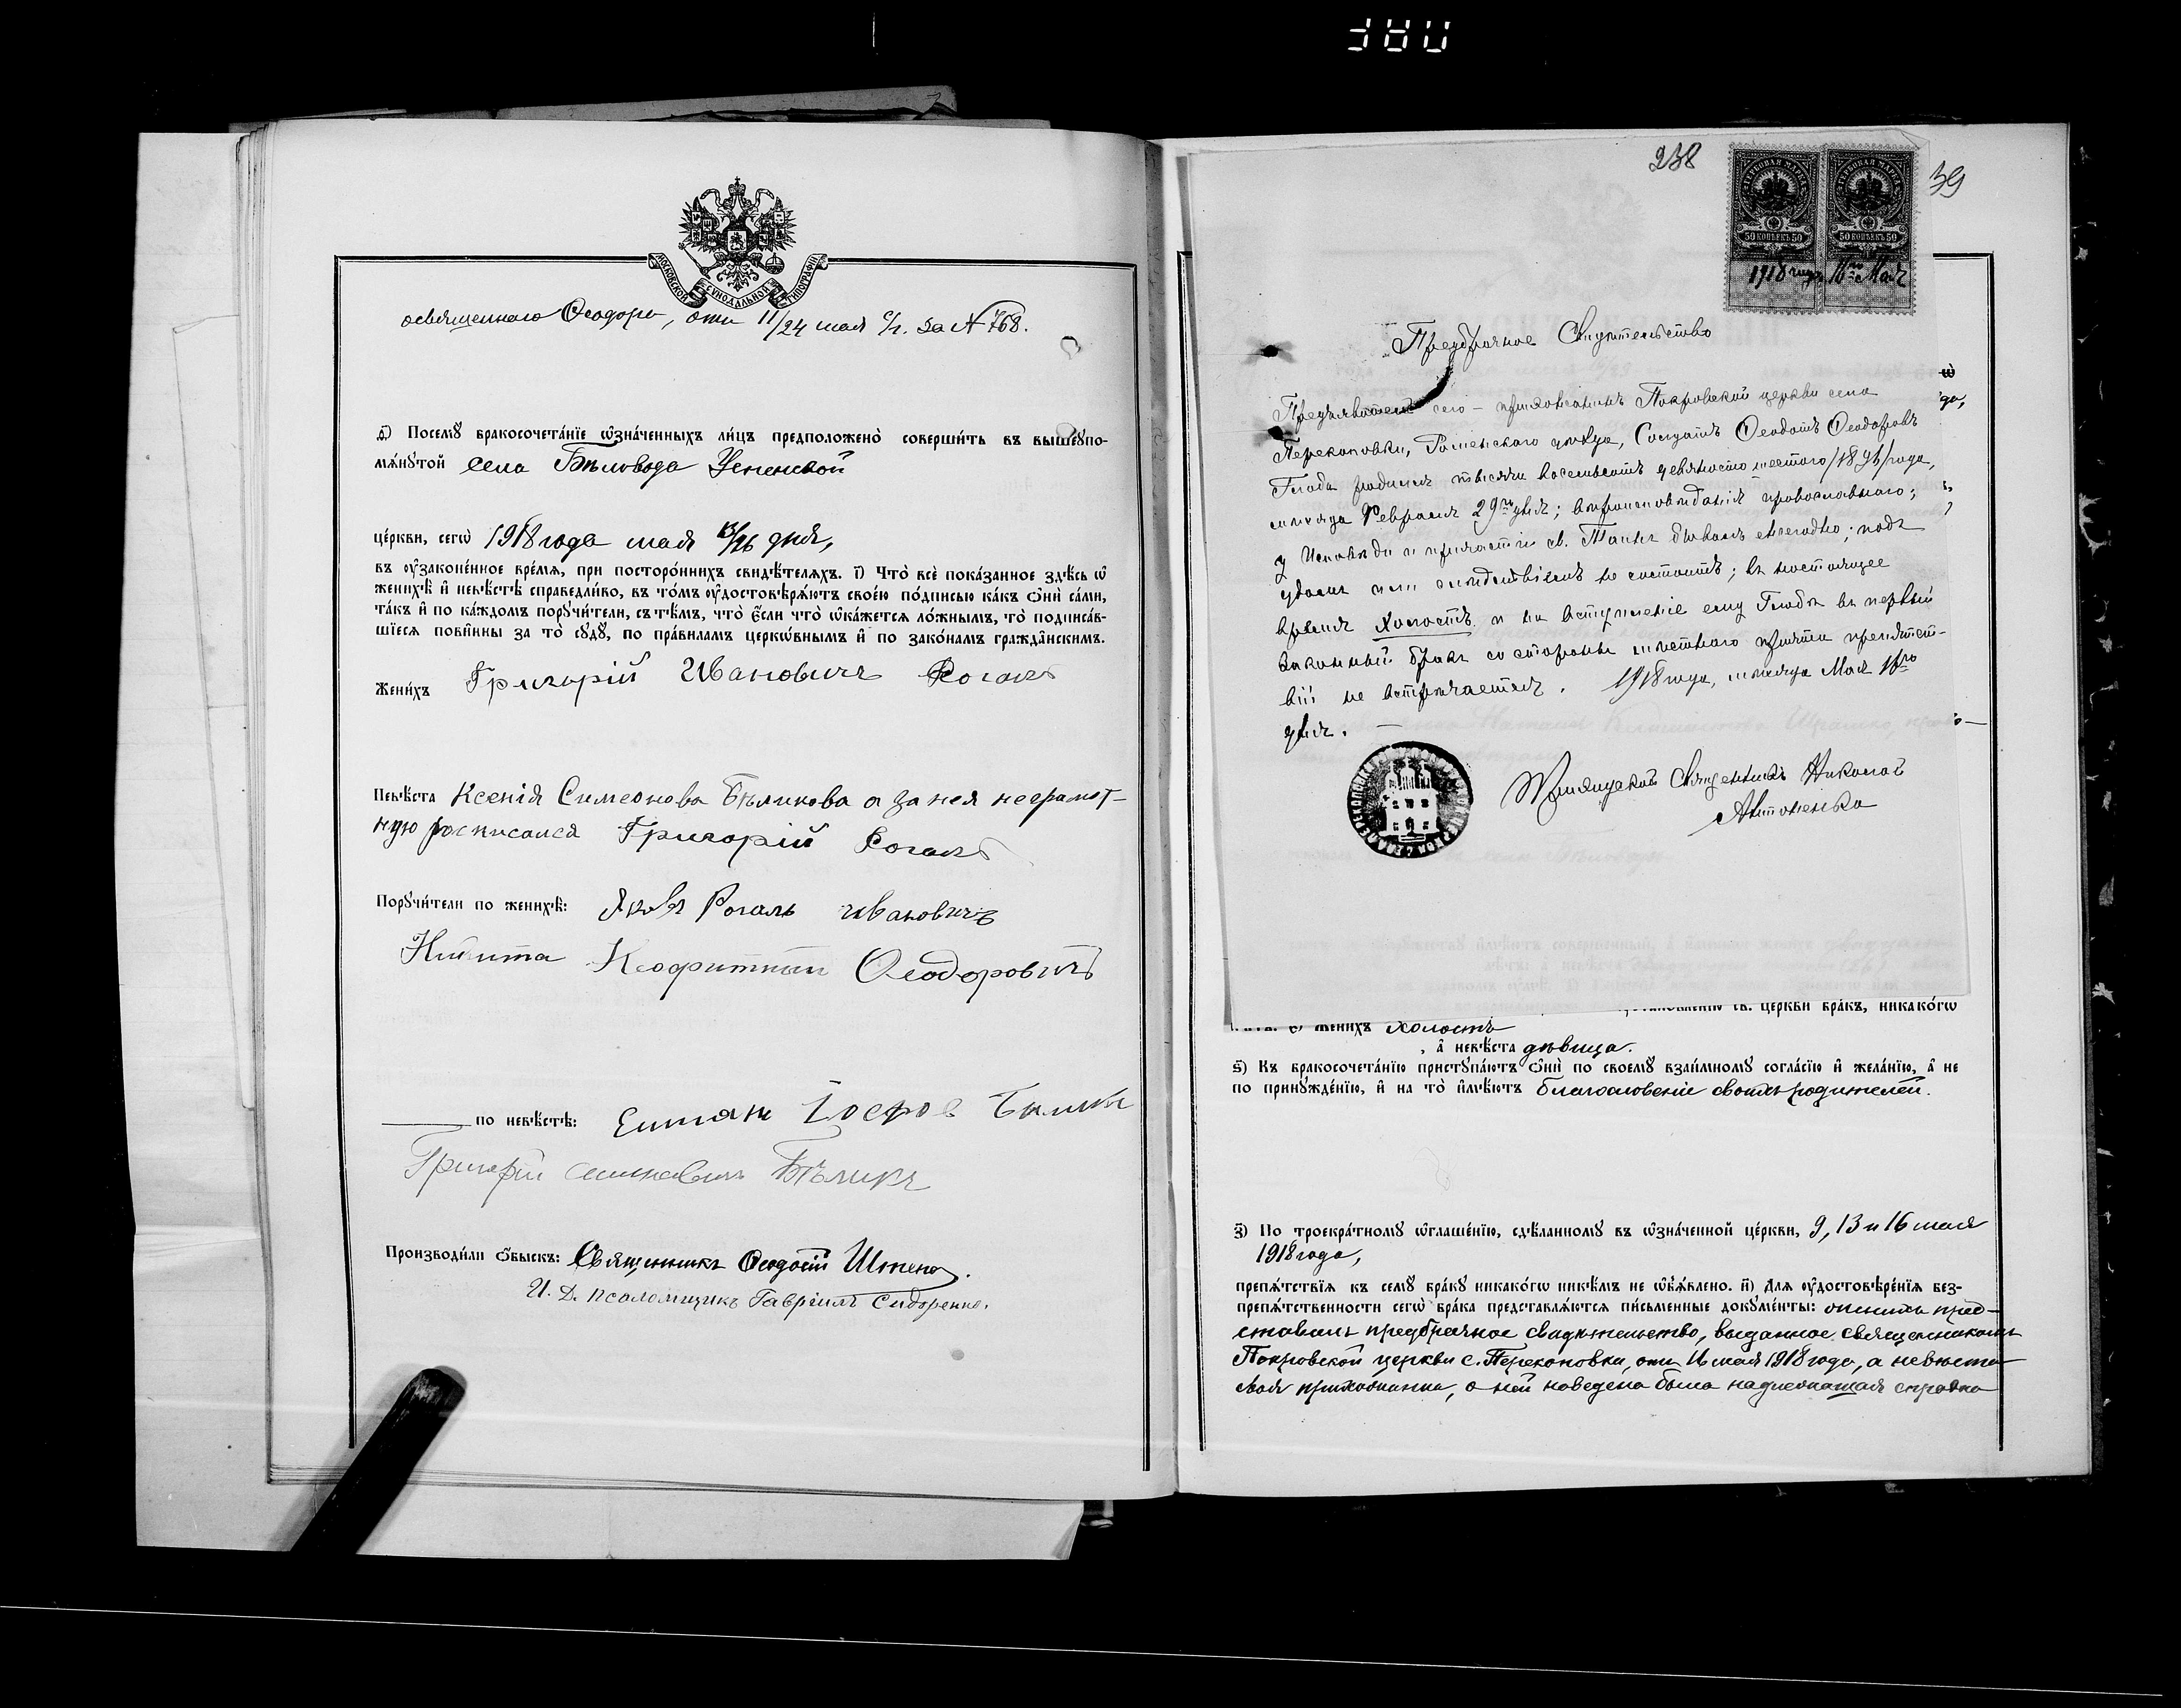 МОСКОВСКОЙ СѴНОДАЛЬНОЙ ТИПОГРАФІИ
освященнаго Ѳеодора, отъ 11/24 мая с/г. за № 768.
ѳ) Посемꙋ бракосочета́нїе ѡ҆зна́ченныхъ ли́цъ предположено̀ соверши́ть въ вышеꙋпо-
мѧ́нꙋтой села Бѣловода Успенской
це́ркви, сегѡ̀ 1918 года мая 13/26 дня,
въ ᲂу҆зако́ненное вре́мѧ, при посторо́ннихъ свидѣ́телѧхъ. і҃) Что̀ всѐ пока́занное здѣ́сь ѡ҆
женихѣ̀ и҆ невѣ́стѣ справедли́во, въ то́мъ ᲂу҆достовѣрѧ́ютъ свое́ю по́дписью ка́къ ѻ҆нѝ са́ми,
та́къ и҆ по ка́ждомъ порꙋчи́тели, съ тѣ́мъ, что̀ є҆́сли что̀ ѡ҆ка́жетсѧ ло́жнымъ, то̀ подписа́в-
шїесѧ пови́нны за то̀ сꙋдꙋ̀, по пра́виламъ церко́внымъ и҆ по зако́намъ гражда́нскимъ.
Жени́хъ Григорій Ивановичъ Рогаль
Невѣ́ста Ксенія Симеонова Бѣликова а за нея неграмот-
ную росписался Григорій Рогаль
Порꙋчи́тели по женихѣ̀: Яковъ Рогаль Ивановичъ
Никита Ѳеодоровичъ
по невѣ́стѣ:
Григорій Бѣликъ
Производи́ли ѻ҆́быскъ: Священникъ Ѳеодосій
И. Д. псаломщикъ Гавріилъ Сидоренко.
238
39
ГЕРБОВАЯ МАРКА ГЕРБОВАЯ МАРКА
50 КОПѢЕКЪ 50 50 КОПѢЕКЪ 50
1918 года 16го Мая
Предбрачное Свидѣтельство
Предъявитель сего – прихожанинъ Покровской церкви села
Перекоповки, Роменскаго уѣзда, Солдатъ Ѳеодотъ Ѳеодоровъ
Глоба родился тысяча восемьсотъ девяносто шестого /1896/ года,
мѣсяца Февраля 29го дня; вѣроисповѣданія православнаго;
у Исповѣди и причастія св. Таинъ бывалъ ежегодно; подъ
судомъ или слѣдствіемъ не состоитъ; въ настоящее
время холостъ и на вступленіе ему Глобѣ въ первый
законный бракъ со стороны мѣстнаго причта препятст-
вій не встрѣчается. 1918 года, мѣсяца Мая 16го
дня. —
Приходскій Священникъ Николай
Антоненко
це́ркви бра́къ, никако́гѡ
жени́хъ холостъ
, а҆ невѣ́ста дѣвица.
ѕ) Къ бракосочета́нїю пристꙋпа́ютъ ѻ҆нѝ по своемꙋ̀ взаи́мномꙋ согла́сїю и҆ жела́нїю, а҆ не
по принꙋжде́нїю, и҆ на то̀ и҆мѣ́ютъ благословеніе своихъ родителей.
з) По троекра́тномꙋ ѡ҆глаше́нїю, сдѣ́ланномꙋ въ ѡ҆зна́ченной це́ркви, 9, 13 и 16 мая
1918 года,
препѧ́тствїѧ къ семꙋ̀ бра́кꙋ никако́гѡ никѣ́мъ не ѡ҆б̾ѧ́влено. и҃) Длѧ ᲂу҆достовѣре́нїѧ без-
препѧ́тственности сегѡ̀ бра́ка представлѧ́ютсѧ пи́сьменные докꙋме́нты: женихъ пред-
ставилъ предбрачное свидѣтельство, выданное священникомъ
Покровской церкви с. Перекоповки, отъ 16 мая 1918 года, а невѣста
своя прихожанка, о ней наведена была надлежащая справка